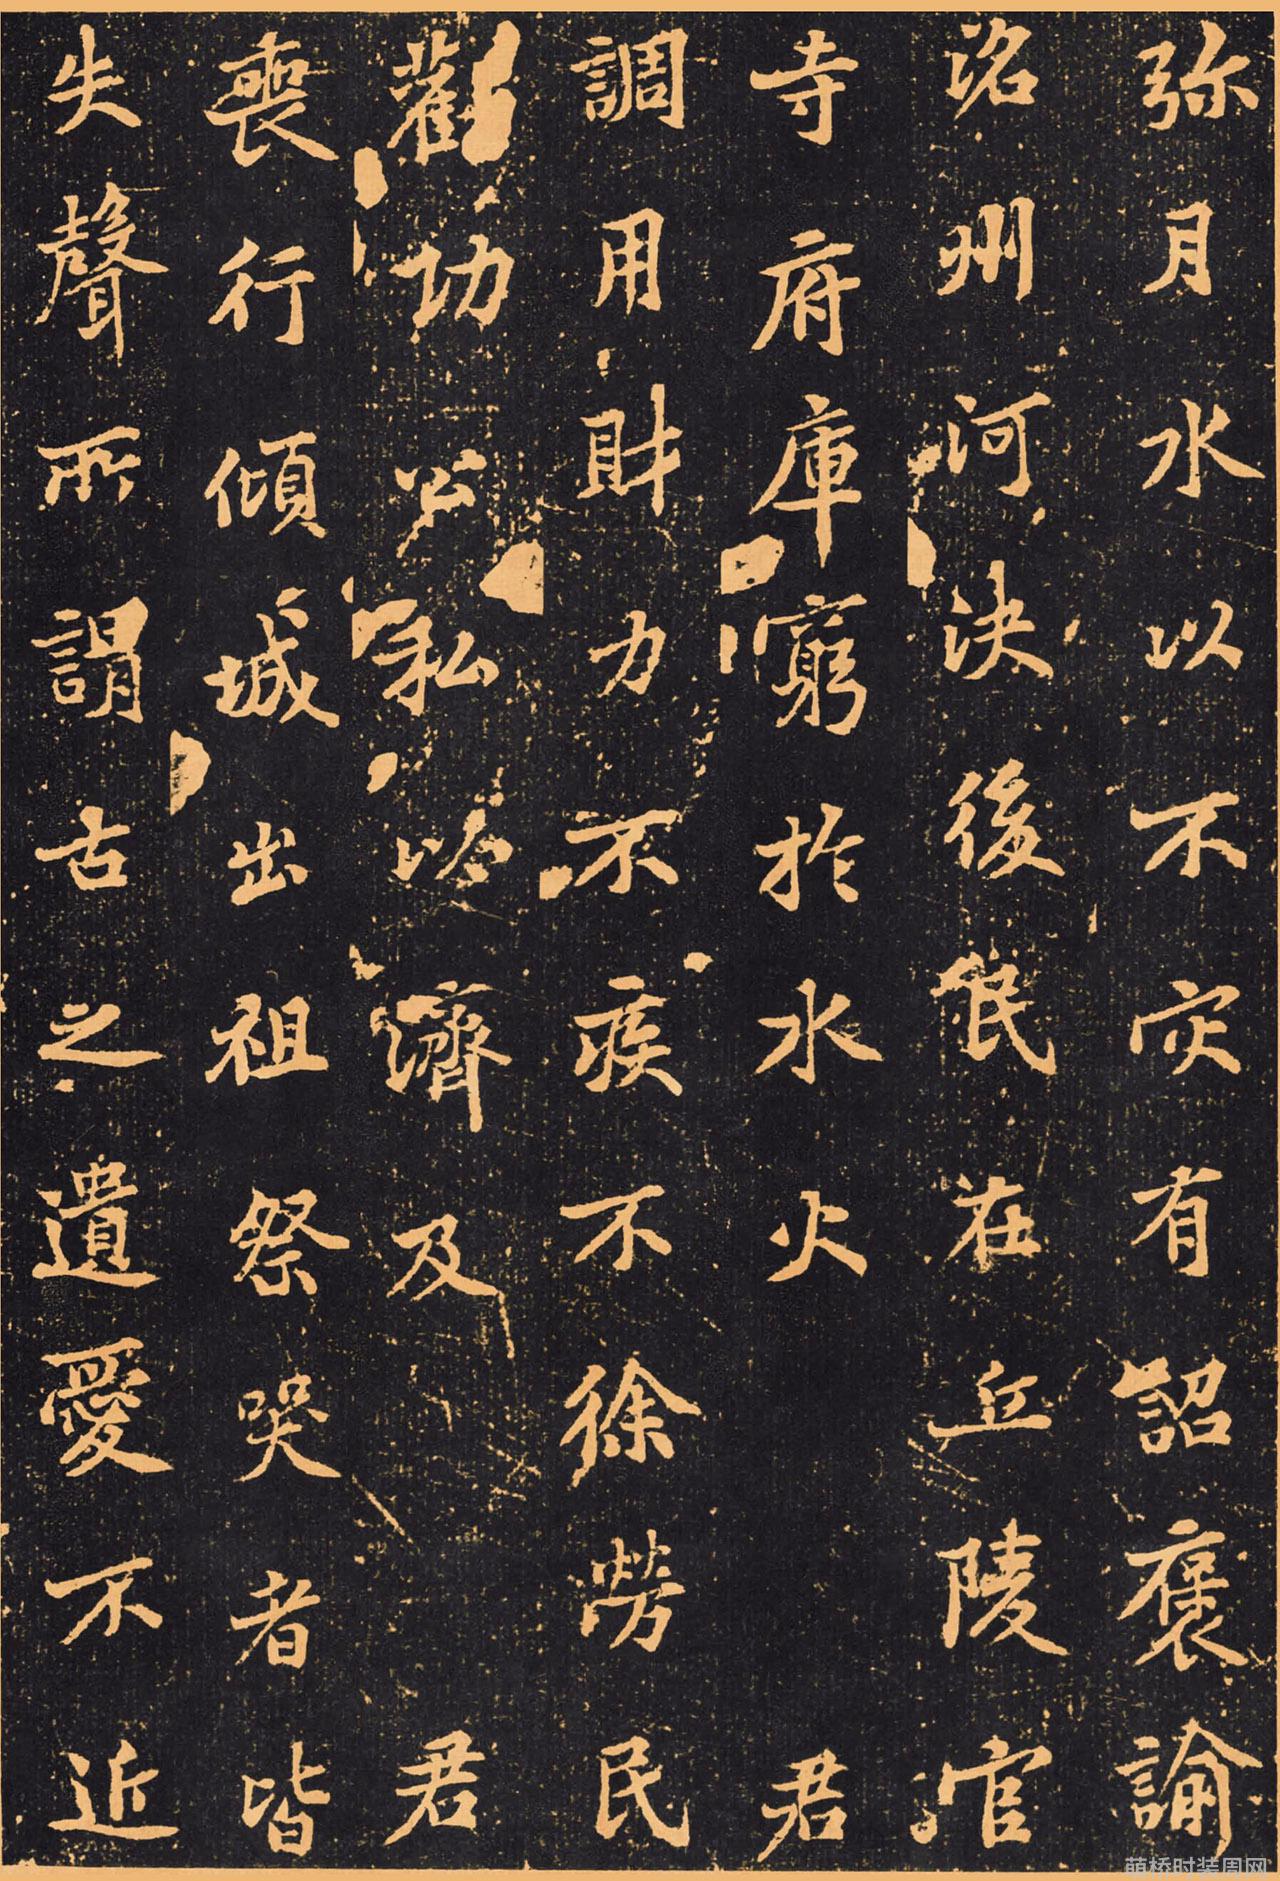 弥月水以不灾有詔褒諭
洺州河决後氓在丘陵官
寺府庫窮於水火君
調用財力不疾不徐勞民
勸功公私以濟及君
喪行傾城出祖祭哭者皆
失聲所謂古之遺愛不近
萌桥时装周网